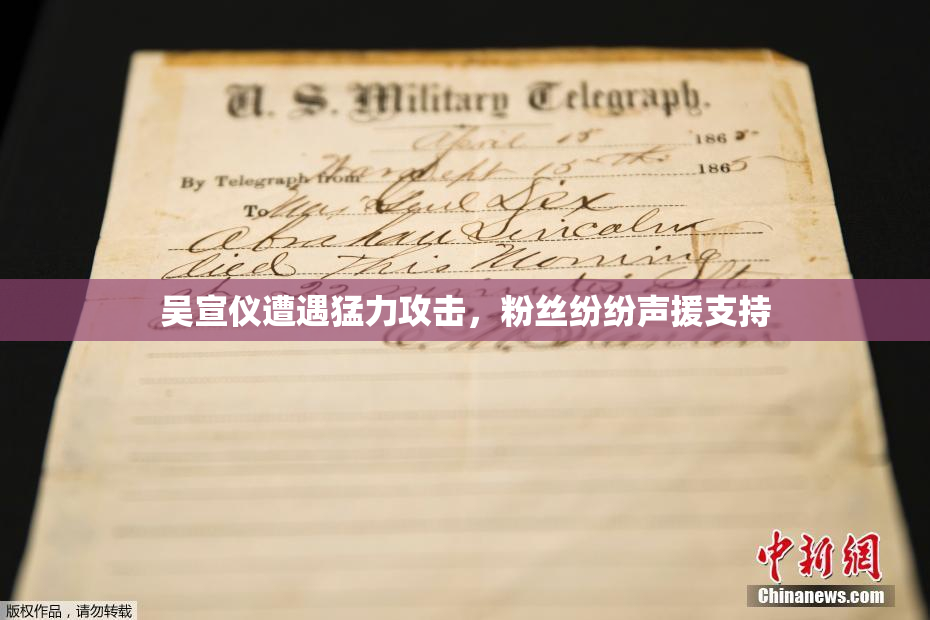 U. S. Military Telegraph.
April 15 1865
By Telegraph from War Dept 15th 1865
To Maj Genl Dix
Abraham Lincoln
died This Morning
at 22 minutes after
吴宣仪遭遇猛力攻击，粉丝纷纷声援支持
E. M. Stanton
中新网
Chinanews.com
版权作品，请勿转载